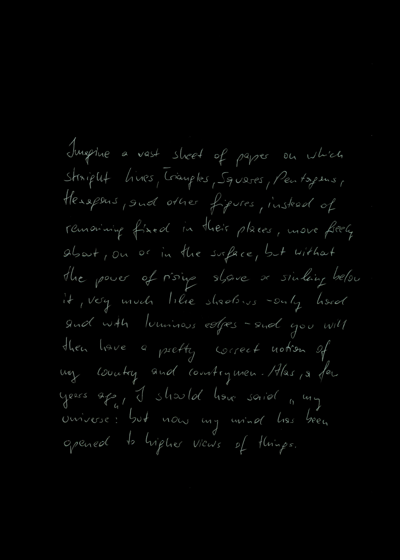 Imagine a vast sheet of paper on which
straight lines, Triangles, Squares, Pentagons,
Hexagons, and other figures, instead of
remaining fixed in their places, move freely
about, on or in the surface, but without
the power of rising above or sinking below
it, very much like shadows - only hard
and with luminous edges - and you will
then have a pretty correct notion of
my country and countrymen. Alas, a few
years ago, I should have said "my
universe": but now my mind has been
opened to higher views of things.